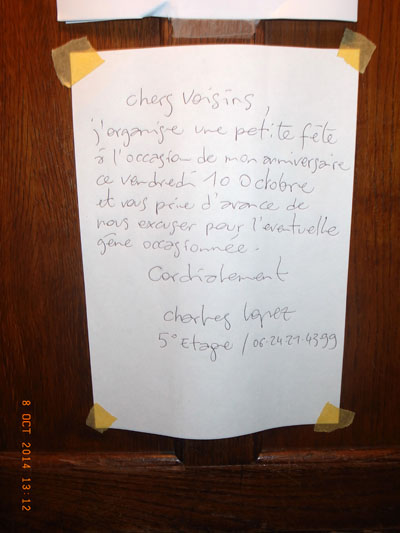 chers Voisins,
j'organise une petite fête
à l'occasion de mon anniversaire
ce vendredi 10 Octobre
et vous prie d'avance de
nous excuser pour l'eventuelle
gêne occasionnée.
Cordialement
Charles Lopez
5° Etage / 06.24.21.4399
8 OCT 2014 13:12